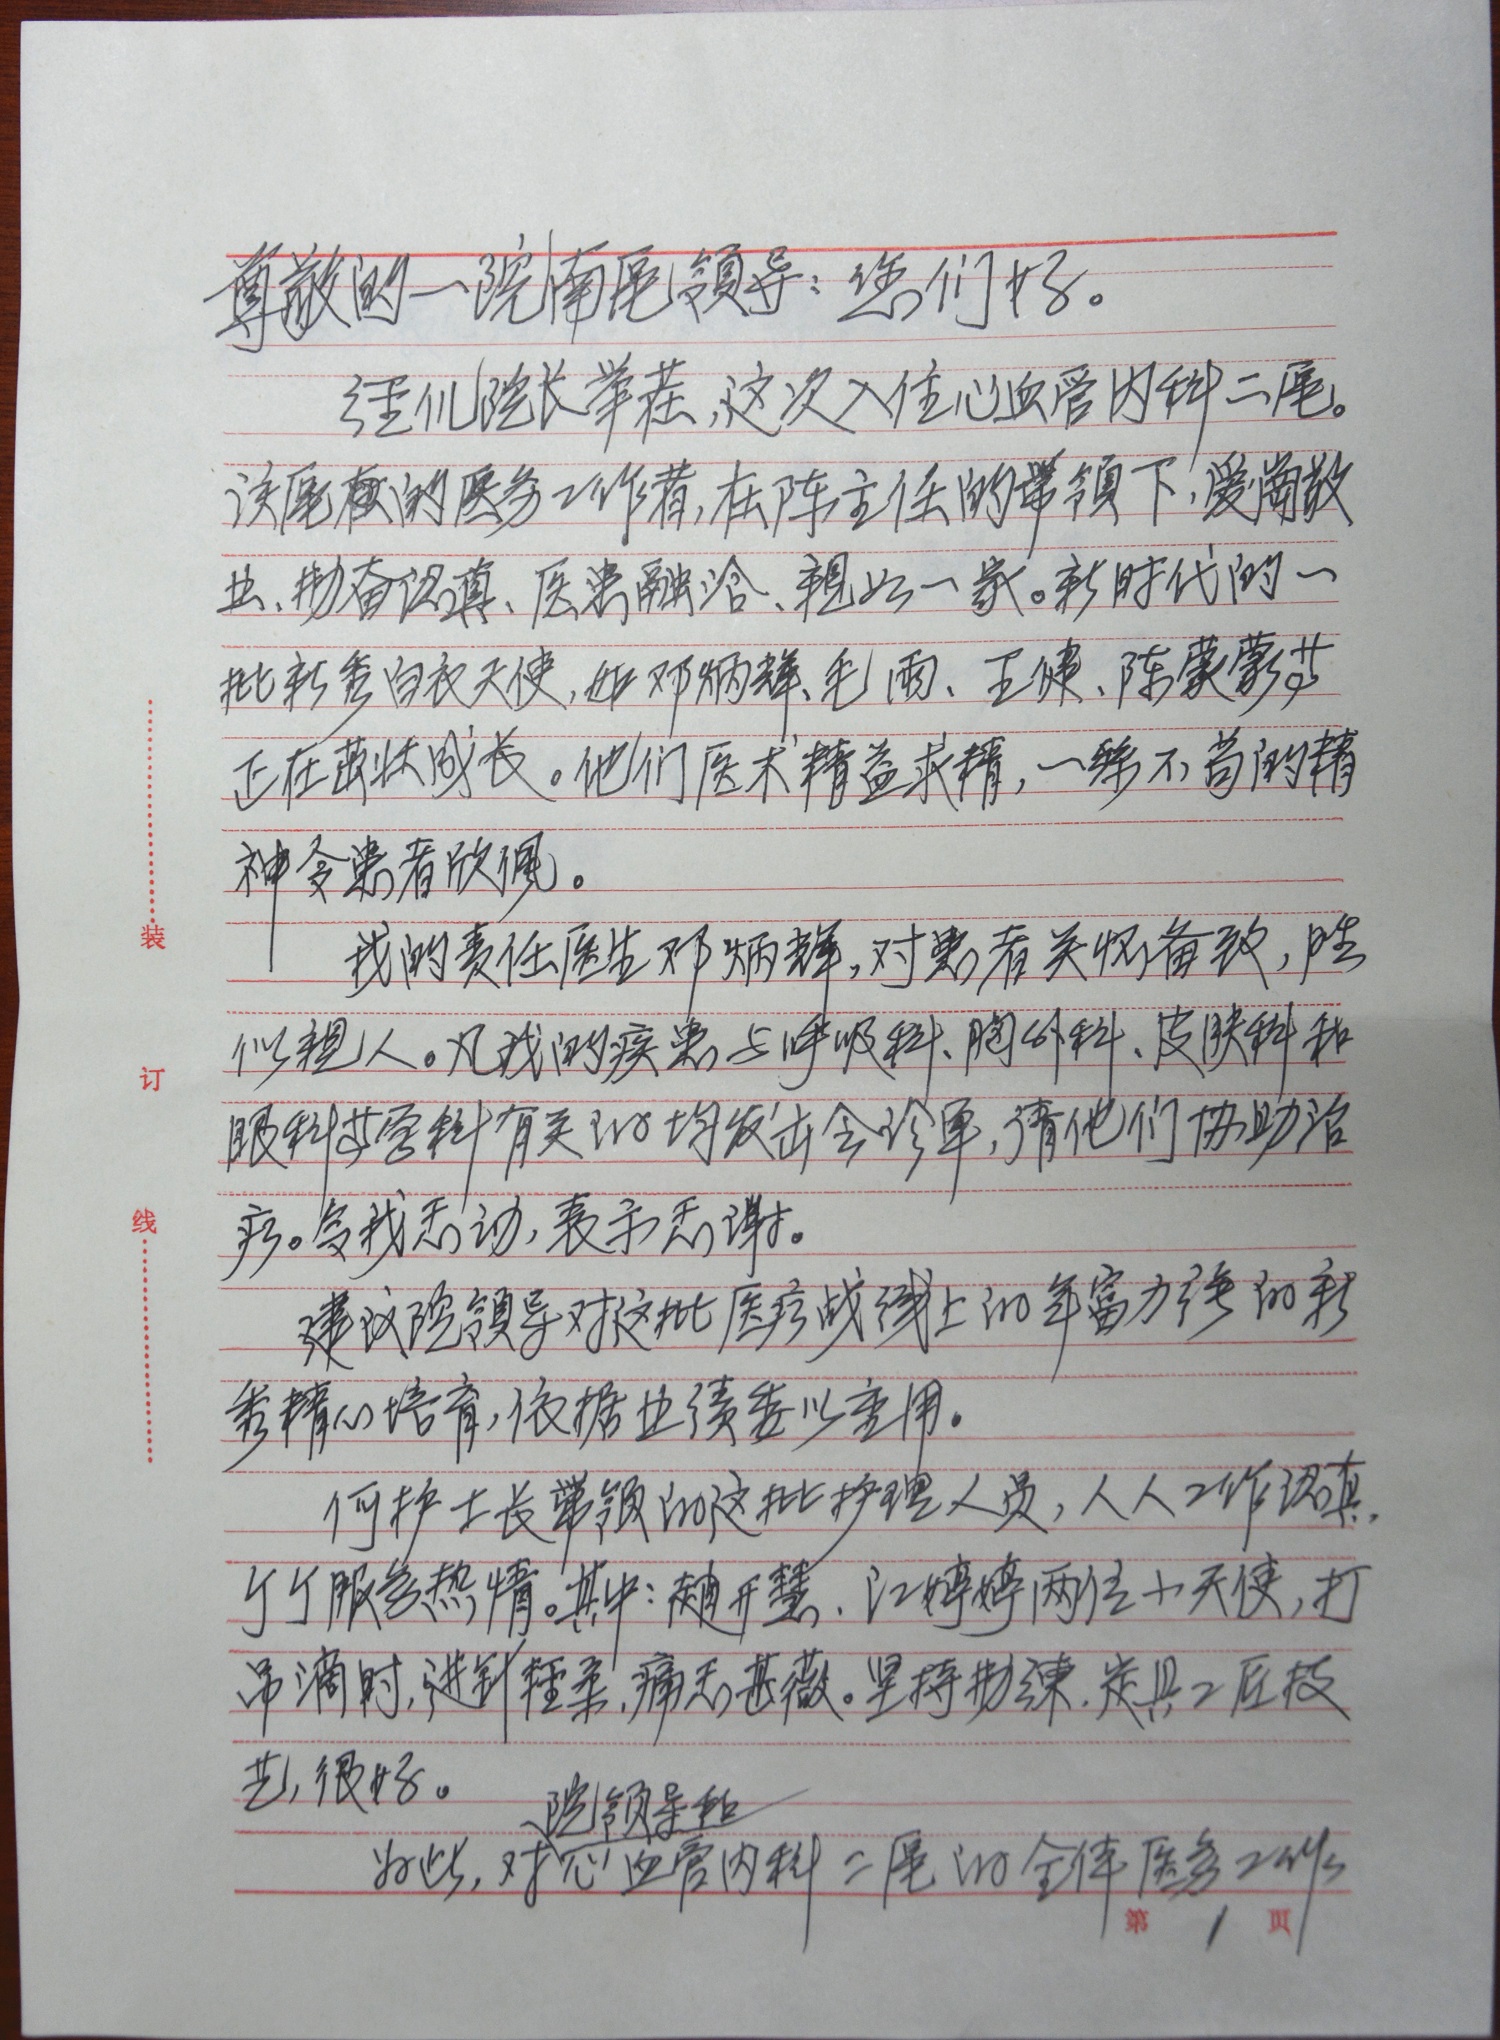 尊敬的一院南尾领导：您们好。
经仉院长举荐，这次入住心血管内科二尾。
该尾极的医务工作者，在陈主任的带领下，爱岗敬
业、勤奋认真、医患融洽、亲如一家。新时代的一
批新秀白衣天使，如邓炳辉、毛雨、王健、陈蒙蒙等
正在茁壮成长。他们医术精益求精，一丝不苟的精
神令患者欣佩。
我的责任医生邓炳辉，对患者关怀备致，胜
似亲人。凡我的疾患与呼吸科、胸外科、皮肤科和
眼科等学科有关的均发出会诊单，请他们协助治
疗。令我感动，表示感谢。
建议院领导对这批医疗战线上的年富力强的新
秀精心培育，依据业绩委以重用。
何护士长带领的这批护理人员，人人工作认真，
个个服务热情。其中：赵开慧、江婷婷两位小天使，打
吊滴时，进针轻柔，痛感甚微。坚持勤练，炭具工匠技
艺，很好。
院领导和
为此，对心血管内科二尾的全体医务工作
第 1 页
装
订
线